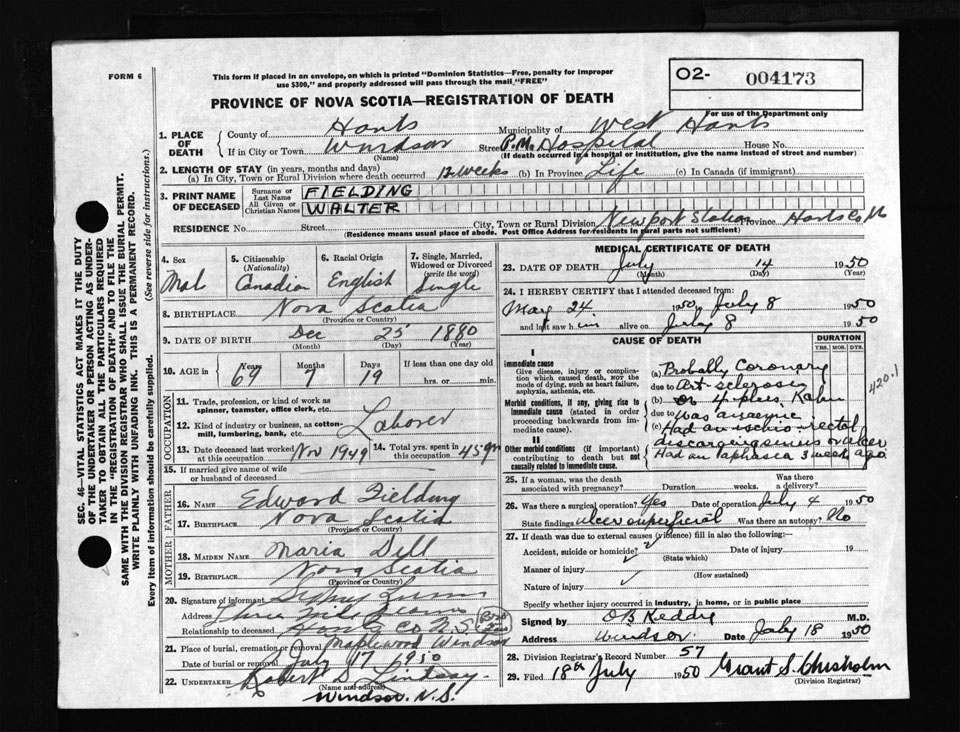 FORM 6
This form if placed in an envelope, on which is printed "Dominion Statistics—Free, penalty for improper
use $300," and properly addressed will pass through the mail "FREE"
O2- 004173
For use of the Department only
PROVINCE OF NOVA SCOTIA—REGISTRATION OF DEATH
1. PLACE OF DEATH
County of Hants Municipality of West Hants
If in City or Town Windsor Street P.M. Hospital House No.
(Name) (If death occurred in a hospital or institution, give the name instead of street and number)
2. LENGTH OF STAY (in years, months and days)
(a) In City, Town or Rural Division where death occurred 12 weeks (b) In Province Life (c) In Canada (if immigrant)
3. PRINT NAME OF DECEASED
Surname or Last Name FIELDING
All Given or Christian Names WALTER
RESIDENCE No. Street City, Town or Rural Division Newport Station Province Hants Co
(Residence means usual place of abode. Post Office Address for residents in rural parts not sufficient)
SEC. 46—VITAL STATISTICS ACT MAKES IT THE DUTY
OF THE UNDERTAKER OR PERSON ACTING AS UNDER-
TAKER TO OBTAIN ALL THE PARTICULARS REQUIRED
IN THE "REGISTRATION OF DEATH" AND TO FILE THE
SAME WITH THE DIVISION REGISTRAR WHO SHALL ISSUE THE BURIAL PERMIT.
WRITE PLAINLY WITH UNFADING INK. THIS IS A PERMANENT RECORD.
Every item of information should be carefully supplied. (See reverse side for instructions.)
4. Sex 5. Citizenship (Nationality) 6. Racial Origin 7. Single, Married, Widowed or Divorced (write the word)
Mal Canadian English Single
8. BIRTHPLACE Nova Scotia
(Province or Country)
9. DATE OF BIRTH Dec 25 1880
(Month) (Day) (Year)
10. AGE in Years Months Days If less than one day old
69 7 19 hrs. or min.
OCCUPATION
11. Trade, profession, or kind of work as
spinner, teamster, office clerk, etc.
12. Kind of industry or business, as cotton-
mill, lumbering, bank, etc. Laborer
13. Date deceased last worked at this occupation Nov 1949 14. Total yrs. spent in this occupation 45
15. If married give name of wife
or husband of deceased
FATHER
16. NAME Edward Fielding
17. BIRTHPLACE Nova Scotia
(Province or Country)
MOTHER
18. MAIDEN NAME Maria Dell
19. BIRTHPLACE Nova Scotia
(Province or Country)
20. Signature of informant Sydney
Address Three Mile Plains
Relationship to deceased Hants Co N.S.
21. Place of burial, cremation or removal Maplewood Windsor
Date of burial or removal July 17 1950
22. UNDERTAKER Robert S. Lindsay
(Name and address)
Windsor. N.S.
MEDICAL CERTIFICATE OF DEATH
23. DATE OF DEATH July 14 1950
(Month) (Day) (Year)
24. I HEREBY CERTIFY that I attended deceased from:
May 24 1950 July 8 1950
and last saw him alive on July 8 1950
CAUSE OF DEATH DURATION
YRS. MOS. DYS.
I
Immediate cause
Give disease, injury or complica-
tion which caused death, not the
mode of dying, such as heart failure,
asphyxia, asthenia, etc.
Morbid conditions, if any, giving rise to
immediate cause (stated in order
proceeding backwards from
immediate cause).
II
Other morbid conditions (if important)
contributing to death but not
causally related to immediate cause.
(a) Probally Coronary
due to Art-sclerosis
(b) on 4 plus Kahn
due to was
(c) Had an ischio-rectal
discarging sinus or ulcer
Had an aphasea 3 week ago
420.1
25. If a woman, was the death associated with pregnancy? Duration weeks. Was there a delivery?
26. Was there a surgical operation? Yes Date of operation July 4 1950
State findings ulcer superficial Was there an autopsy? No
27. If death was due to external causes (violence) fill in also the following:
Accident, suicide or homicide? Date of injury 19
(State which)
Manner of injury
(How sustained)
Nature of injury
Specify whether injury occurred in industry, in home, or in public place
Signed by OB Keddy M.D.
Address Windsor Date July 18 1950
28. Division Registrar's Record Number 57
29. Filed 18th July 1950 Grant S. Chisholm
(Division Registrar)